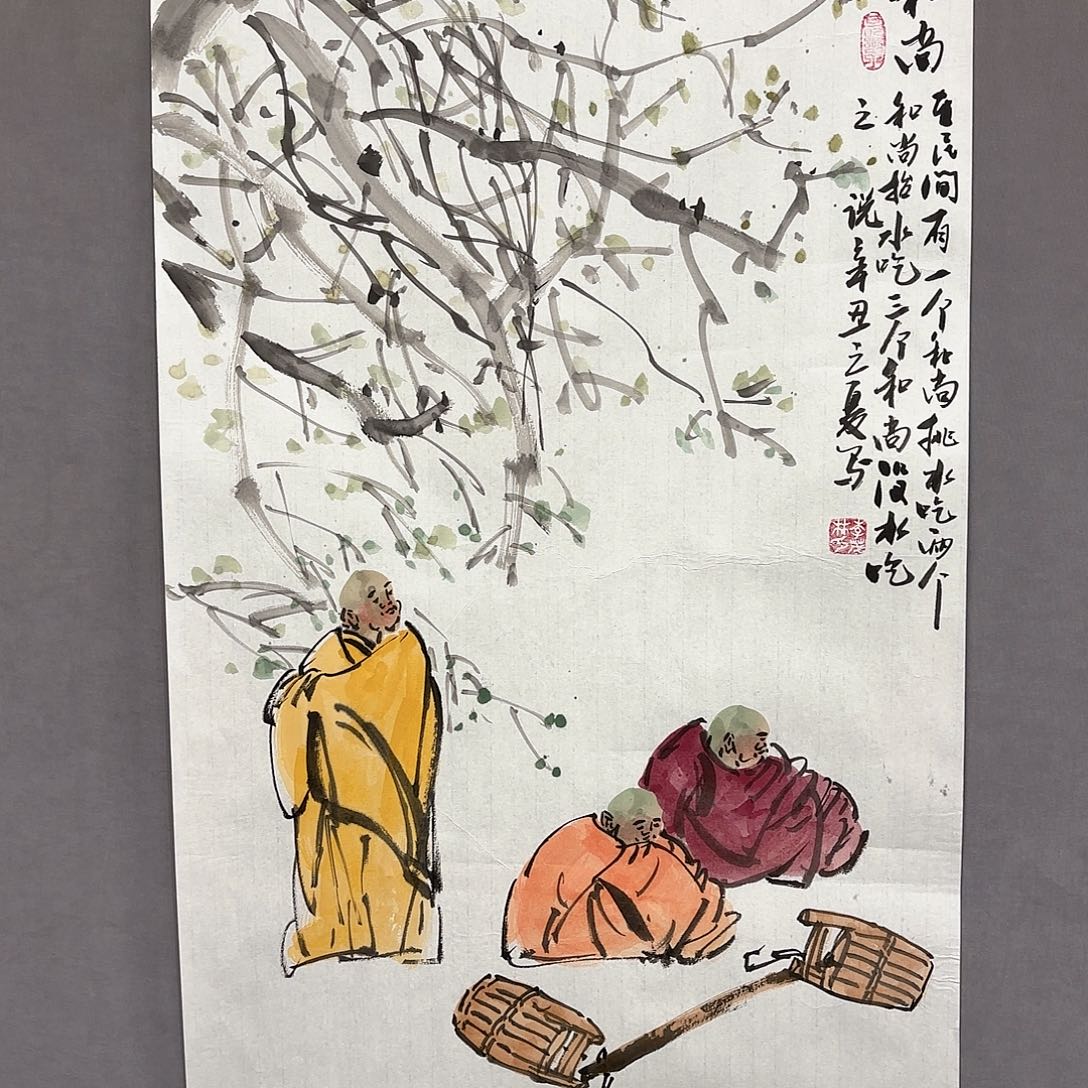 尚
在民间有一个和尚挑水吃两个
和尚抬水吃三个和尚没水吃
之说辛丑之夏写